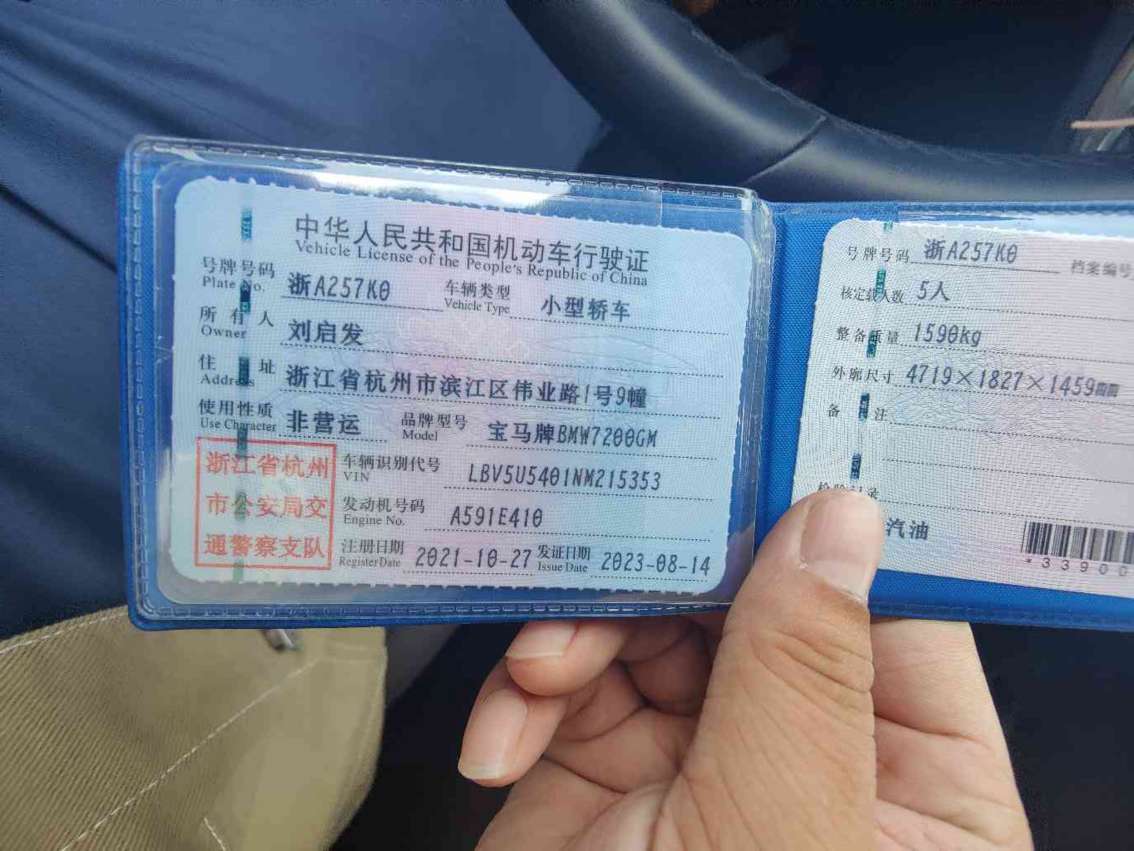 中华人民共和国机动车行驶证
Vehicle License of the People's Republic of China
号牌号码 浙A257K0 车辆类型 小型轿车
Plate No. Vehicle Type
所有人 刘启发
Owner
住址 浙江省杭州市滨江区伟业路1号9幢
Address
使用性质 非营运 品牌型号 宝马牌BMW7200GM
Use Character Model
浙江省杭州
市公安局交
通警察支队
车辆识别代号 LBV5U5401NM215353
VIN
发动机号码 A591E410
Engine No.
注册日期 2021-10-27 发证日期 2023-08-14
Register Date Issue Date
号牌号码 浙A257K0 档案编号
核定载人数 5人
整备质量 1590kg
外廓尺寸 4719×1827×1459
备注
汽油
*33900